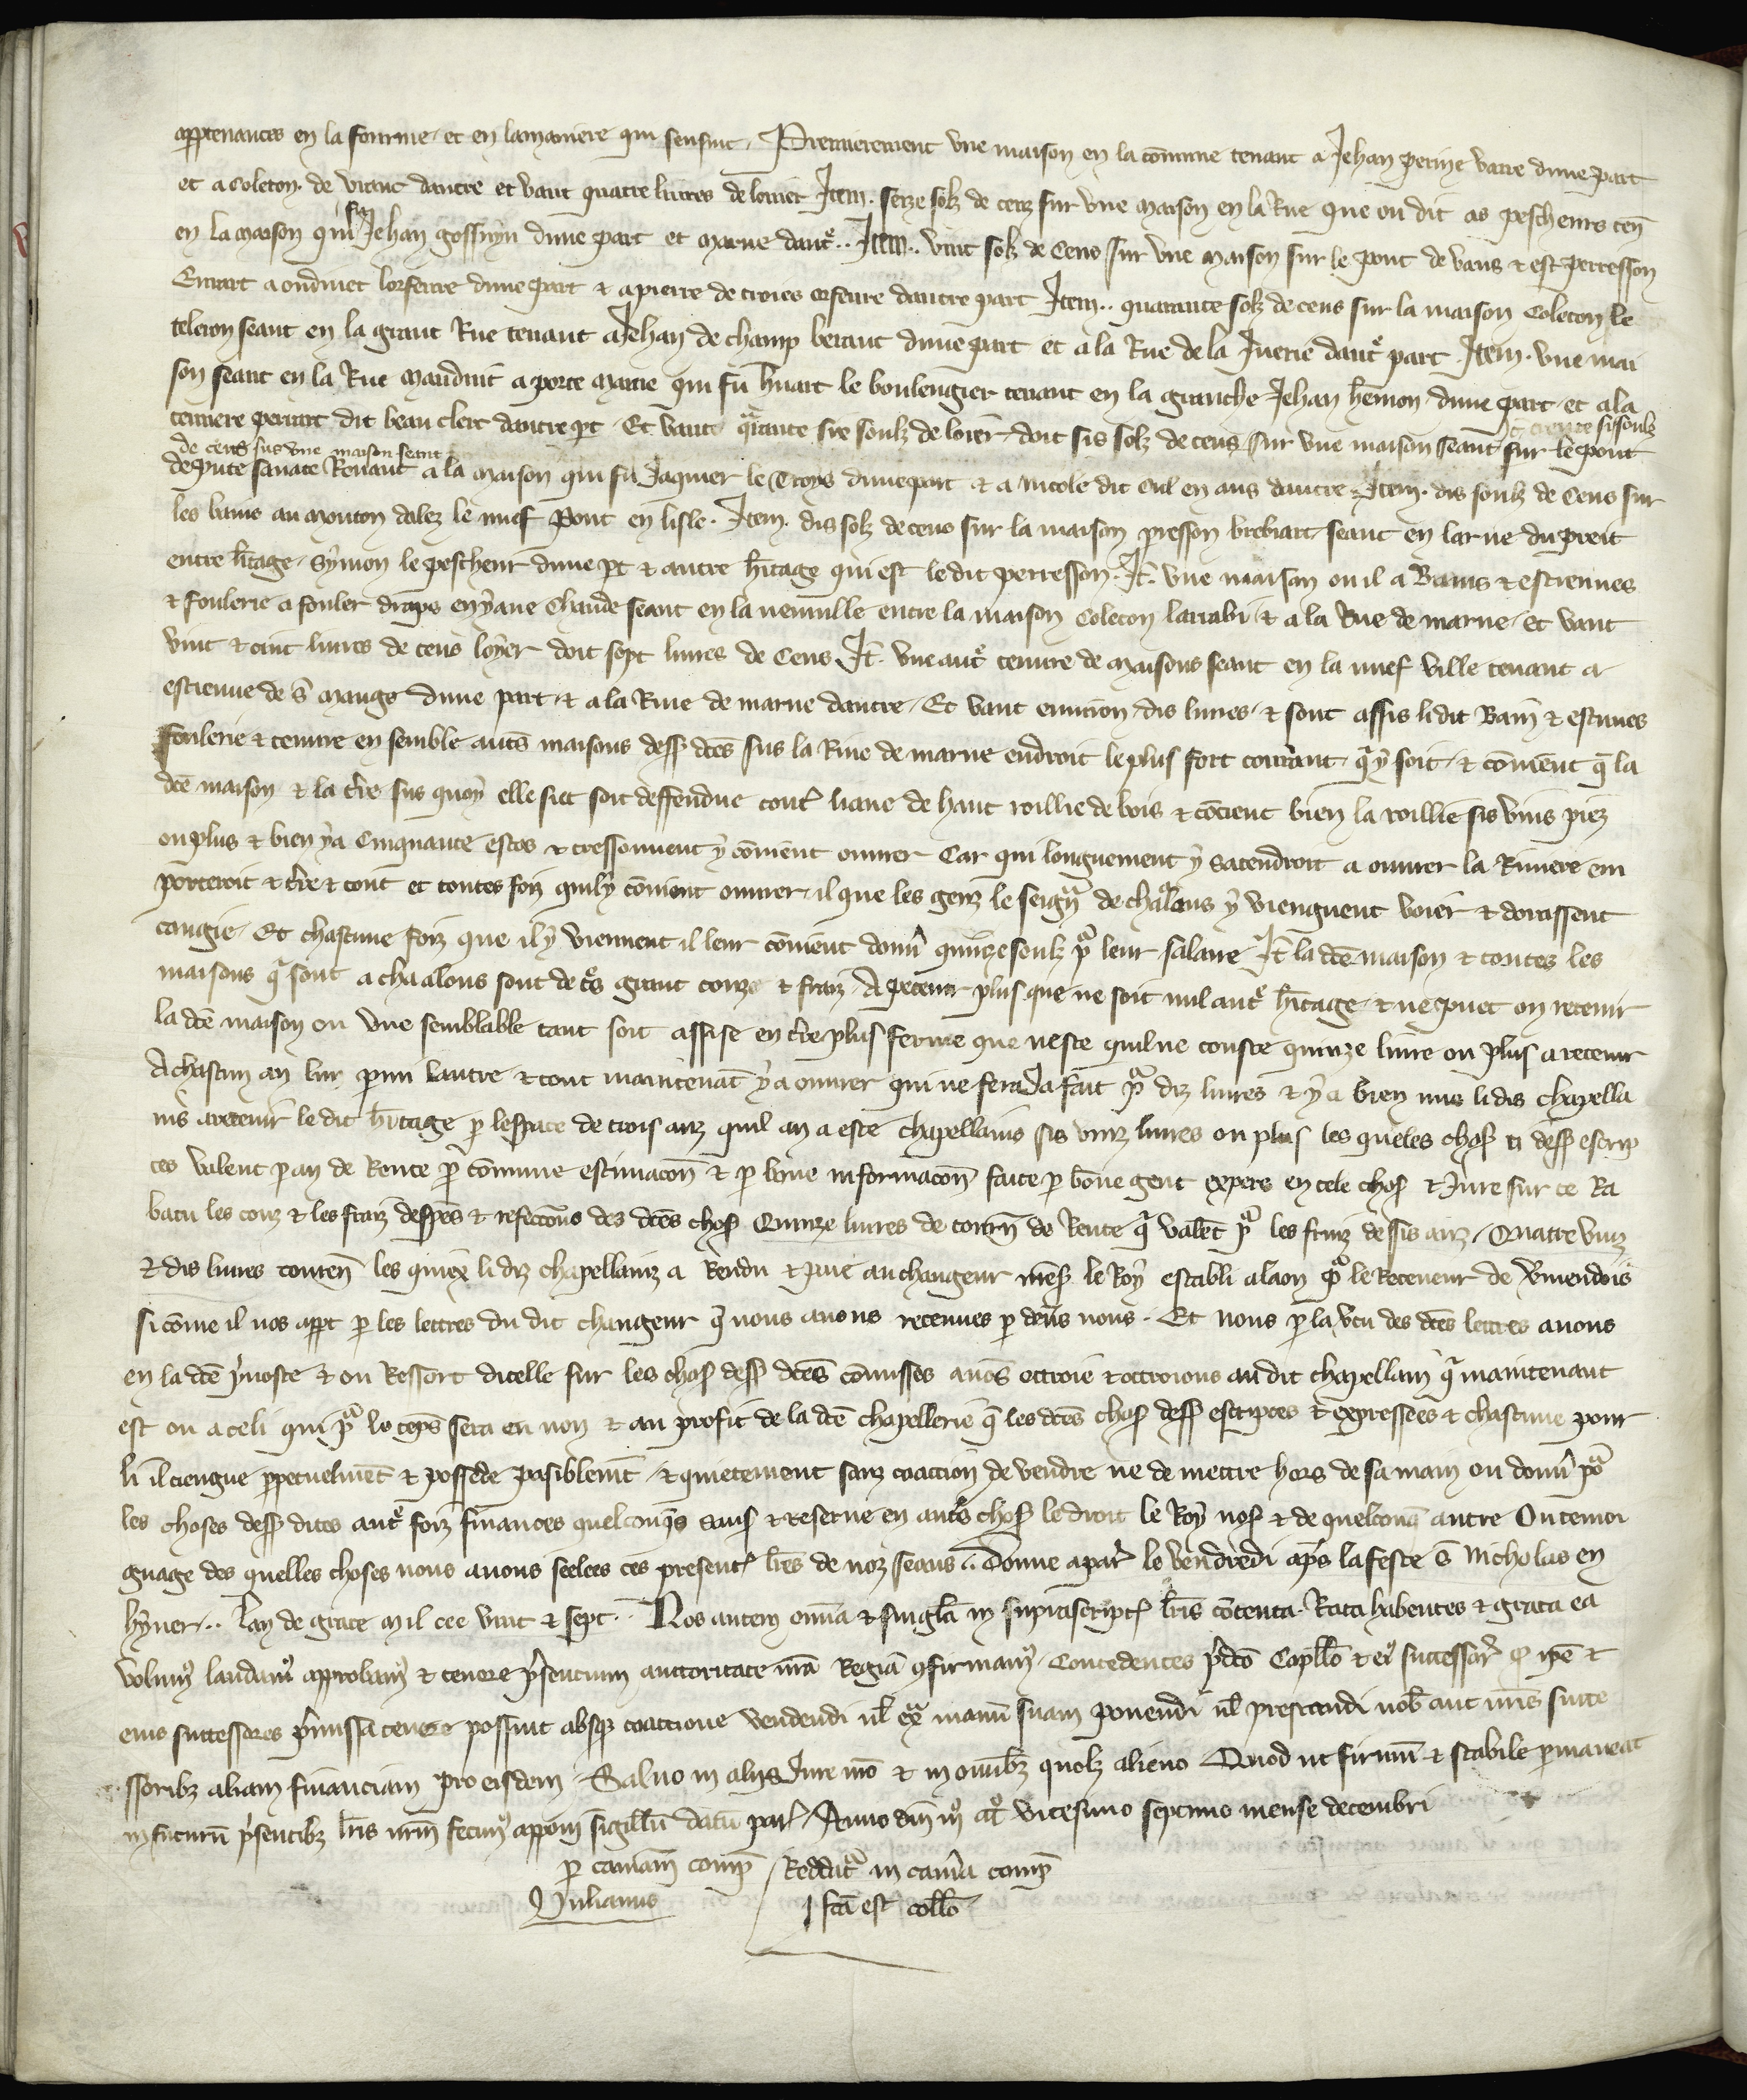 apptenances en la fourme et en lamaniere qui sensuit. Premierement vne maison en la cōmune tenant a Jehan petine varre dune part
et a Coleton de vitauc dautre et vaut quatre liures de louier Item. seize solz de cens sur vne maison en la Rue que on dit as pescheurs ten̄
en la maison qui fu Jehan gossuyn dune part et Marne daut̄.. Item.. vint solz de Cens sur vne maison sur le pont de vaus ⁊ est perresson
Errart a oudinet lorfeure dune part ⁊ a pierre de troies orfeure dautre part Item.. quarante solz de cens sur la maison Coleton le
telcion seant en la grant Rue tenant a Jehan de champ beraut dune part et a la Rue de la Juerie daut̄ part Item. vne mai
son seant en la Rue Maudint a porte Marne qui fu huart le boulengier tenant en la granche Jehan hēmon dune part et a la
teniere perrart dit beau clerc dautre pt Et vaut qrante sis soulz de loier doit sis solz de cens sur vne maison seant sur le pont It trente sisoulz
de cens sus vne maison seant
de pute sauate tenant a la maison qui fu Jaquier le Croys dune part ⁊ a nicole dit cul en aus dautre Item. dis soulz de Cens sur
les bains au mouton dalez le nuef Pont en lisle. Item. dis solz de cens sur la maison presson brebiart seant en la rue du preit
entre h̄itage Symon le pescheur dune pt ⁊ autre h̄itage qui est le dit perresson. It. vne maison ou il a Bains ⁊ estennes
⁊ foulerie a fouler draps en yaue Chaude seant en la neuuille entre la maison Coleton larrabi ⁊ a la Rue de marne et vaut
vint ⁊ cinc liures de cens loyer doit sept liures de Cens It. vne aut̄ tenure de maisons seant en la nuef ville tenant a
estienne de s̄ mange dune part ⁊ a la Riue de marne dautre Et vaut enuiron dis liures ⁊ sont assis li dit Bain ⁊ estuues
foulerie ⁊ tenure en semble autēs maisons dess dc̄es sus la Riue de marne endroit le plus fort courant q̄ y soit ⁊ cōuient q̄ la
dc̄e maison ⁊ la t̄re sus quoy elle siet soit deffendue cont̄ liaue de haut roillie de bois ⁊ cōtient bien la roillie sis vins piez
ou plus ⁊ bien y a Cinquante estos ⁊ tressouuent y cōuient ouurer Car qui longuement y satendroit a ouurer la Riuiere em
porteroit ⁊ t̄re ⁊ tout et toutes foiz quily cōuient ouurer il que les genz le seign̄ de chalons y viengnent voier ⁊ doiuissent
congie. Et chascune foiz que il y viennent il leur cōuient donn̄ quinze soulz pͦ leur salaire It la dc̄e maison ⁊ toutes les
maisons q̄ sont a chaalons sont de t̄s grant couz ⁊ fraiz A retenir plus que ne soit nul aut̄ h̄itage ⁊ ne puet on retenir
la dc̄e maison ou vne semblable tant soit assise en t̄re plus ferme que neste quil ne couste quinze liure ou plus a retenir
A chascun an lun p̄mi lautre ⁊ tout maintenāt y a ouurer qui ne sera Ja fait pͣ dix liures ⁊ y a bien mis li dis chapella
ins a retenir le dit h̄itage p lespace de trois anz quil an a este chapellains sis vinz liures ou plus les queles chos ci dess escrip
tes valent p an de Rente p cōmune estimacon̄ ⁊ p bone informacon̄ faite p bōne gent expers en tele chos ⁊ Jure sur ce Ra
batu les couz ⁊ les fraiz despēs ⁊ refectons des dc̄es chos Quinze liures de tourn̄ de Rente q̄ valēt pͣ les fruiz de sis anz Quatre vinz
⁊ dis liures tourn̄ les quiex li diz chapellainz a Rendu ⁊ paie au changeur n̄res le Roy establi a laon pͦ le Receueur de v̄mendois
si cōme il nos appt p les lettres du dit changeur q̄ nous auons retenues p deūs nous. Et nous p la vtu des dc̄es lettres auons
en la dc̄e p̄uoste ⁊ ou Ressort dicelle sur les chos dess dc̄es cōmisses auōs ottroie ⁊ ottroions au dit chapellain q̄ maintenant
est ou a celi qui pͣ le tēps sera en non ⁊ au profit de la dc̄e chapellerie q̄ les dc̄es chos dess escriptes ⁊ expressees ⁊ chascune pour
li il tiengne ppetuelmēt ⁊ possede paisiblem̄t ⁊ quietement sanz coaction de vendre ne de mettre hors de sa main ou donn̄ pͦ
les choses dess dites aut̄ foiz finances quelconq̄s sauf ⁊ reserue en aut̄s chos le droit le Roy nos ⁊ de quelconq̄ autre On temoi
gnage des quelles choses nous auons seelees ces present̄ lr̄es de noz seaus. Donne a par̄ le vendredi ap̄s la feste s̄ Nicholas en
hyuer.. lan de grace Mil ccc vint ⁊ sept.. Nos autem omīa ⁊ singl̄a in suprascript̄ lr̄is cōtenta Rata habentes ⁊ grata ea
volum̄ laudam̄ approbam̄ ⁊ tenore p̄sentium auctoritate nr̄a Regia ꝯfirmam̄. Concedentes p̄dc̄o Capll̄o ⁊ ei successor̄ ꝙ ipē ⁊
eius successores p̄missa tenere possint absꝫ coactione vendendi ul̄ ex manū suam ponendi ul̄ prestandi nob̄ aut nr̄is succe
ssoribꝫ aliam financiam pro eisdem Saluo in alijs Jure nr̄o ⁊ in omībꝫ quolꝫ alieno Quod ut firmū ⁊ stabile pmaneat
in futurū p̄sentibꝫ lr̄is nr̄m fecim̄ appōni sigillū datū par̄ Anno dn̄i mͦ cccͦ vicesimo septimo mense decembri
p cam̄am comp̄ Reddatͣ in cam̄a comp̄
Julianus fc̄a est coll̄o